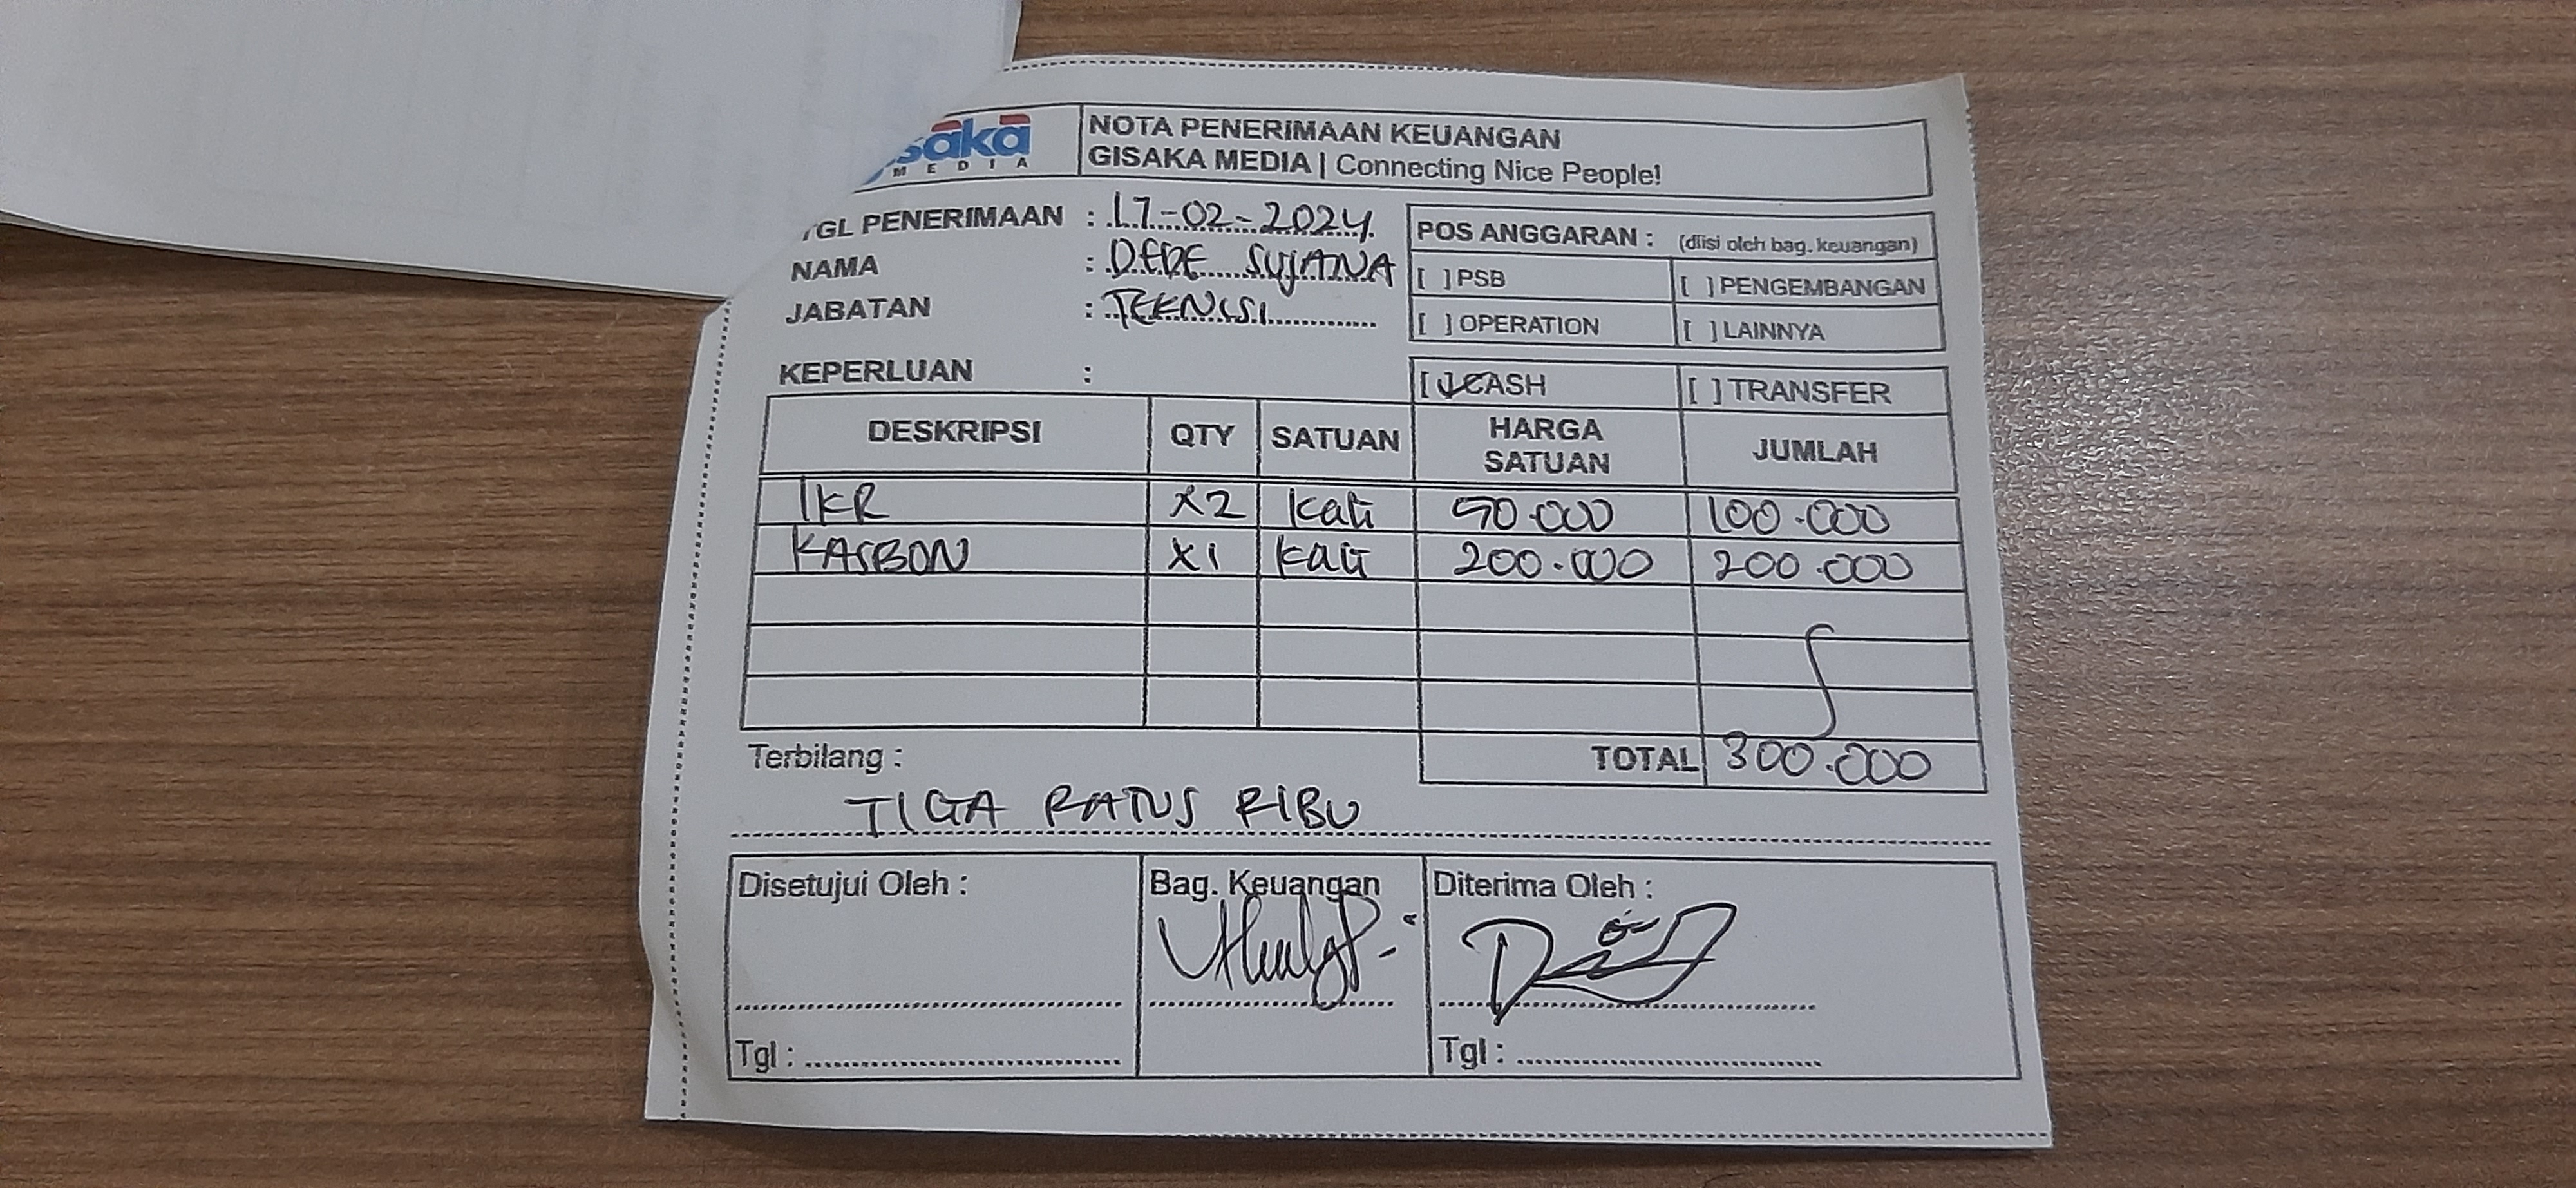 saka
MEDIA
NOTA PENERIMAAN KEUANGAN
GISAKA MEDIA | Connecting Nice People!
TGL PENERIMAAN : 17-02-2024
NAMA : DEDE SUJANA
JABATAN : TEKNISI
POS ANGGARAN : (diisi oleh bag. keuangan)
[ ] PSB [ ] PENGEMBANGAN
[ ] OPERATION [ ] LAINNYA
KEPERLUAN :
[✓] CASH [ ] TRANSFER
DESKRIPSI QTY SATUAN HARGA SATUAN JUMLAH
IKR X2 Kali 50.000 100.000
KASBON X1 Kali 200.000 200.000
Terbilang : TOTAL 300.000
TIGA RATUS RIBU
Disetujui Oleh : Bag. Keuangan Diterima Oleh :
Tgl : Tgl :